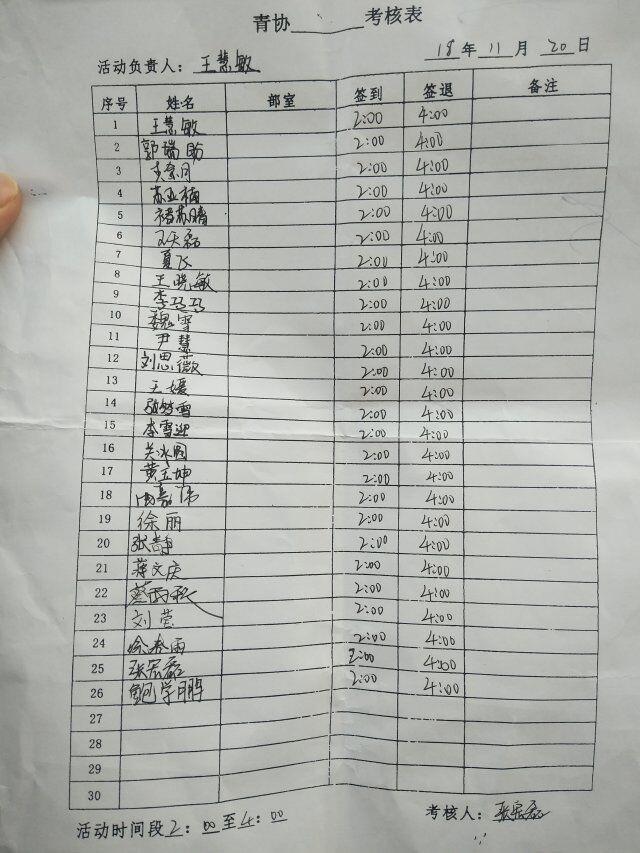 青协______考核表
活动负责人：王慧敏 18年11月20日
序号 姓名 部室 签到 签退 备注
1 王慧敏 2:00 4:00
2 郭瑞 2:00 4:00
3 2:00 4:00
4 苏亚梅 2:00 4:00
5 褚苏晴 2:00 4:00
6 王天磊 2:00 4:00
7 夏飞 2:00 4:00
8 王晓敏 2:00 4:00
9 李马马 2:00 4:00
10 魏雪 2:00 4:00
11 尹慧 2:00 4:00
12 刘思薇 2:00 4:00
13 王媛 2:00 4:00
14 雪 2:00 4:00
15 李雪迎 2:00 4:00
16 关冰圆 2:00 4:00
17 黄玉坤 2:00 4:00
18 周嘉伟 2:00 4:00
19 徐丽 2:00 4:00
20 张静 2:00 4:00
21 蒋文庆 2:00 4:00
22 蔡雨 2:00 4:00
23 刘莹 2:00 4:00
24 徐春雨 2:00 4:00
25 张宏磊 2:00 4:00
26 鲍学鹏 2:00 4:00
27
28
29
30
活动时间段2：00至4：00 考核人：张宏磊